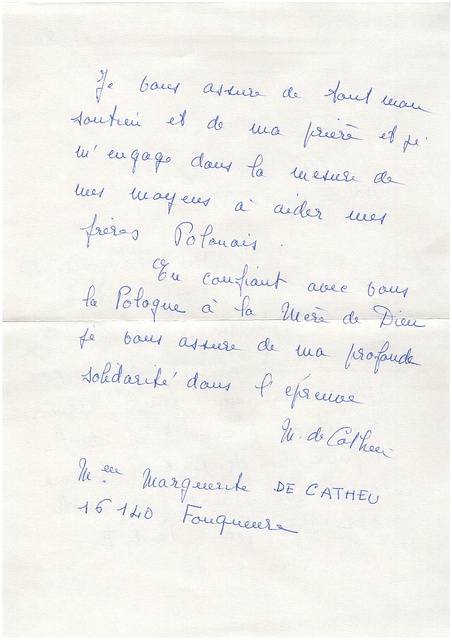 Je vous assure de tout mon
soutien et de ma prière et je
m'engage dans la mesure de
mes moyens à aider mes
frères Polonais.
En confiant avec vous
la Pologne à la Mère de Dieu
je vous assure de ma profonde
solidarité dans l'épreuve
M. de Catheu
Marguerite DE CATHEU
16140 Fouqueure